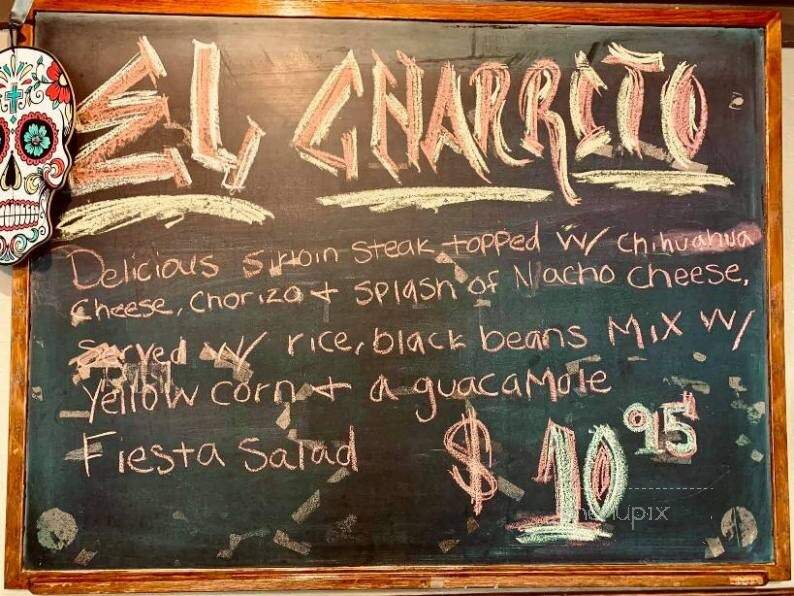 EL CHARRITO
Delicious Sirloin steak topped w/ chihuahua
cheese, chorizo + splash of Nacho cheese,
Served w/ rice, black beans Mix w/
yellow corn + a guacamole
Fiesta Salad $10.95
menupix